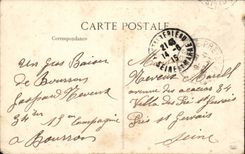 CARTE POSTALE
Correspondance
Un gros Baiser
de Bourron
Gaspard Neveux
34
13e Compagnie
a Bourron
21
14 - 6
15
SEINE-ET-MARNE
M
Neveux Marcel
avenue des acacias 34
Villa des Prés St Gervais
Prés St Gervais
Seine